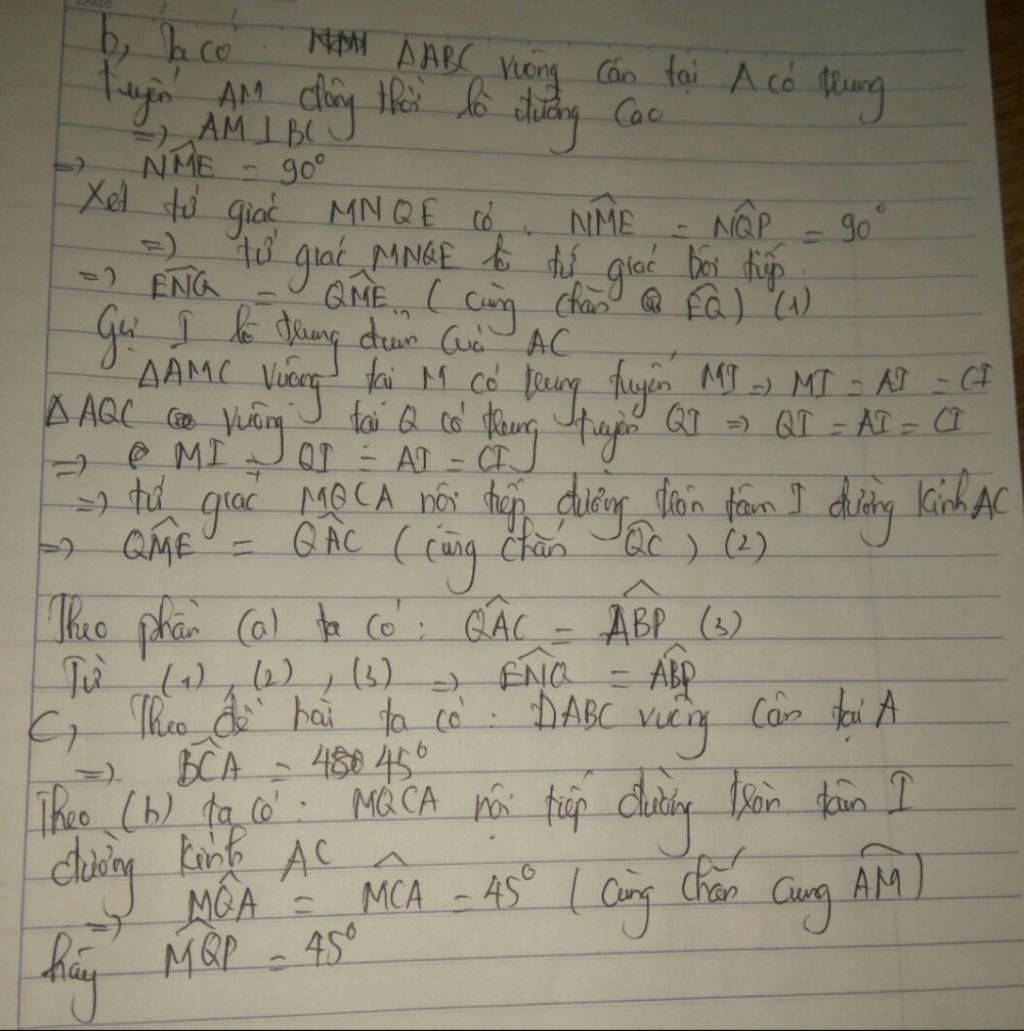 b, Ta có ΔABC vuông cân tại A có trung
tuyến AM đồng thời là đường cao
=> AM⊥BC
=> N\widehat{M}E = 90°
Xét tứ giác MNQE có N\widehat{M}E = N\widehat{Q}P = 90°
=> tứ giác MNQE là tứ giác nội tiếp.
=> E\widehat{N}Q = Q\widehat{M}E (cùng chắn \widehat{EQ}) (1)
Gọi I là trung điểm của AC
ΔAMC vuông tại M có trung tuyến MI => MI = AI = CI
ΔAQC vuông tại Q có trung tuyến QI => QI = AI = CI
=> MI = QI = AI = CI
=> tứ giác MQCA nội tiếp đường tròn tâm I đường kính AC
=> Q\widehat{M}E = Q\widehat{A}C (cùng chắn \widehat{QC}) (2)
Theo phần (a) ta có: Q\widehat{A}C = \widehat{ABP} (3)
Từ (1), (2), (3) => E\widehat{N}Q = A\widehat{B}P
C, Theo đề bài ta có: ΔABC vuông cân tại A
=> B\widehat{C}A = 45°
Theo (b) ta có: MQCA nội tiếp đường tròn tâm I
đường kính AC
=> M\widehat{Q}A = \widehat{MCA} = 45° (cùng chắn cung \widehat{AM})
hay M\widehat{Q}P = 45°